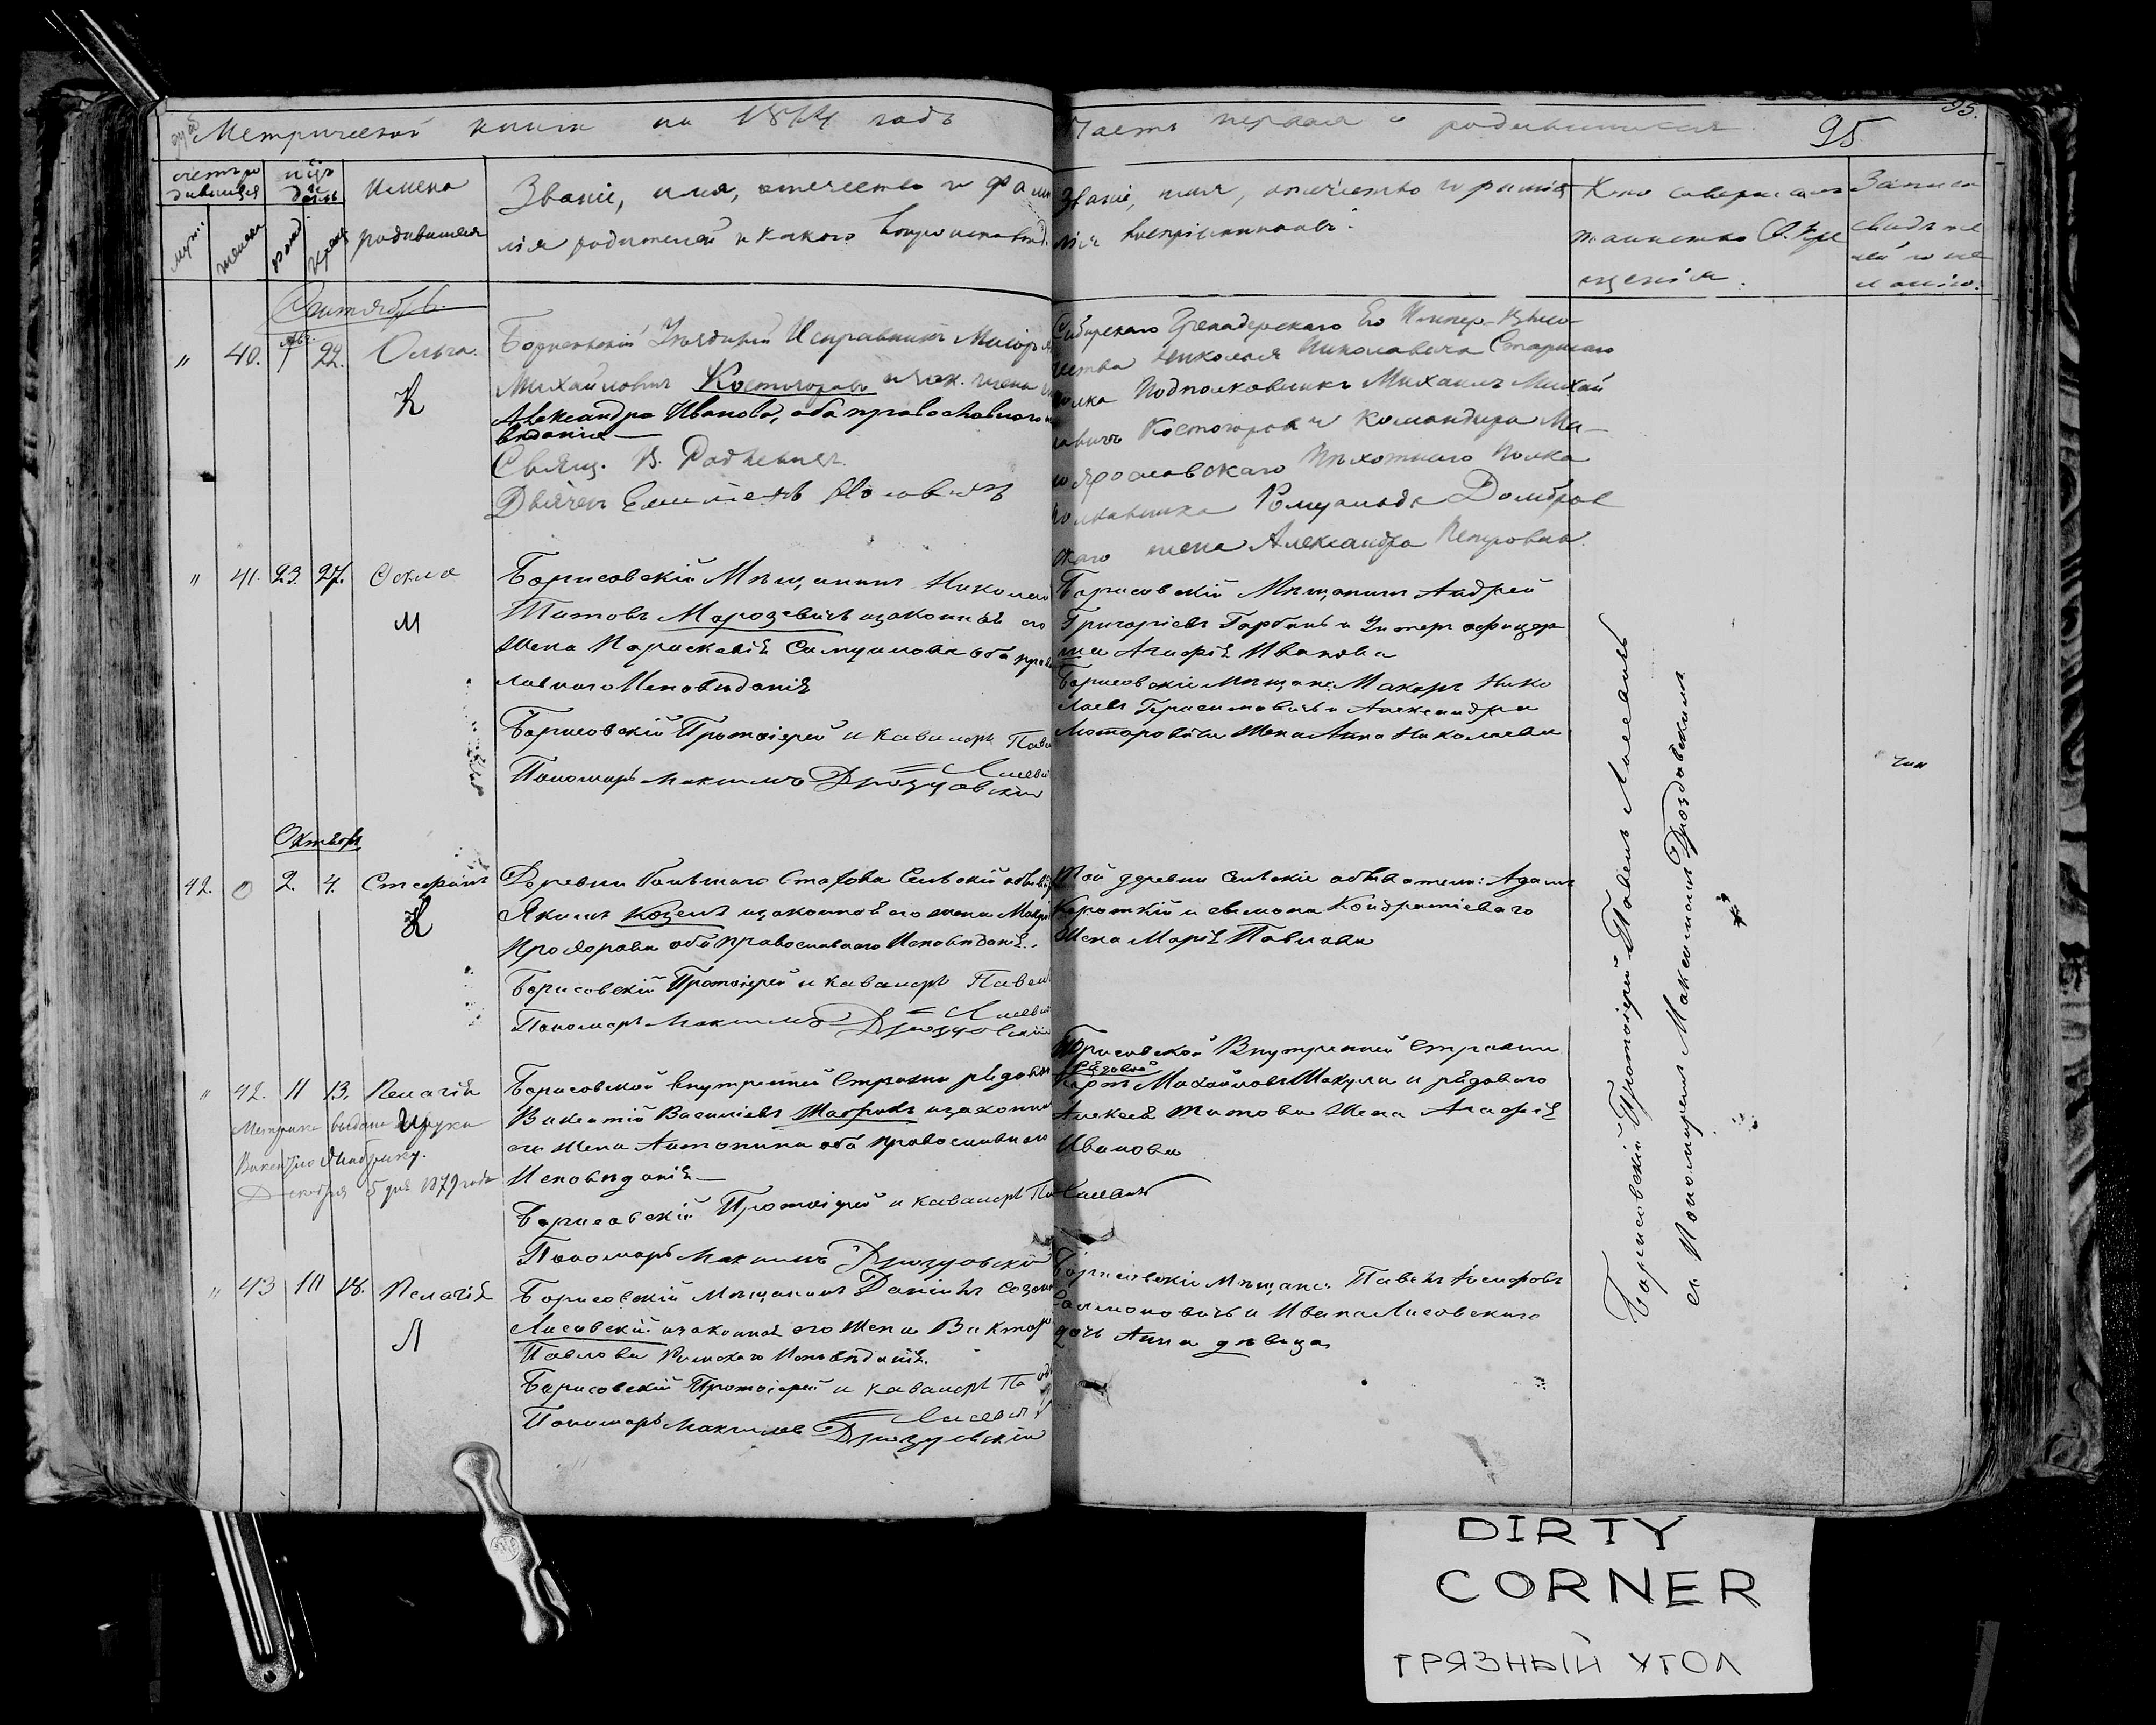 Метрической книги на 1874 годъ
Часть первая о родившихся.
95
95.
счетъ ро
дившихся
муж:
женска
рожд
крещ
Имена
родившихся
Званіе, имя, отчество и фами
лія родителей и какого вѣроисповѣд.
Званіе, имя, отчество и фамил
лія воспріемниковъ.
Кто совершалъ
таинство С. Кре
щенія.
Записи
свидѣте
лей по же
ланію.
Сентябрь.
" 40. 1 22. Ольга.
К
Борисовскій Уѣздный Исправникъ Маіоръ
Михайловичъ Костогоровъ и зак. жена
Александра Иванова, оба православнаго
вѣданія
Свящ. В. Родкевичъ
Дьячек
Сибирскаго Гренадерскаго Его Импер. Высо-
чества Николая Николаевича Старшаго
полка Подполковникъ Михаилъ Михай
ловичъ Костогоровъ и Командира Ма-
лоярославскаго Пѣхотнаго Полка
Полковника Ромуальда Домбров
скаго жена Александра Петровна.
" 41. 23. 27. Фекла
М
Борисовскій Мѣщанинъ Николай
Титовъ Марозевичъ изаконная его
Жена Параскевія Самуилова оба прав
лавнаго Исповѣданія
Борисовскій Протоіерей и кавалеръ Павел
Лисевич
Пономарь Максимъ Дроздовскій
Борисовскій Мѣщанинъ Андрей
Григоріевъ Гарбань и Унтеръ офицер
ша Агафія Иванова
Борисовскіе Мѣщане: Макаръ Нико
лаевъ Герасимовичъ и Александра
Жена Анна Николаева
Октябрь
42. 0 2. 4. Стефанъ
К
Деревни Большаго Стахова Сельскій обыват
Якимъ Козелъ изаконная его жена
Прохорова оба православнаго Исповѣданія.
Борисовскій Протоіерей и кавалеръ Павел
Лисевич
Пономарь Максимъ Дроздовскій
Той деревни Сельскіе обыватели: Адамъ
Короткій и Симона Кондратіеваго
Жена Марія Павлова
" 42. 11 13. Пелагія
Метрика выдана на руки
Викентію Шабрику.
Декабря 5 дня 1879 года
Борисовской Внутренней Стражи рядовой
Викентій Василіевъ Шабрикъ изаконна
его Жена Антонина оба православнаго
Исповѣданія
Борисовскій Протоіерей и кавалеръ Па Лисевич
Пономарь Максимъ Дроздовскій
Борисовской Внутренней Стражи
рядовой
Карпъ Михайловъ Шакула и рядоваго
Алексѣя Титова Жена Агафія
Иванова
" 43 18. Пелагія
Л
Борисовскій Мѣщанинъ Даніилъ Созон
Лисовскій изаконная его Жена Виктор
Павлова Римскаго Исповѣданія.
Борисовскій Протоіерей и кавалеръ Па
Лисевич
Пономарь Максимъ Дроздовскій
Борисовскіе Мѣщане: Павелъ Іосифовъ
Саламоновичъ и Ивана Лисовскаго
дочь Анна дѣвица
Борисовскій Протоіерей Павелъ Лисевичъ
съ Пономаремъ Максимомъ Дроздовскимъ
DIRTY
CORNER
ГРЯЗНЫЙ УГОЛ